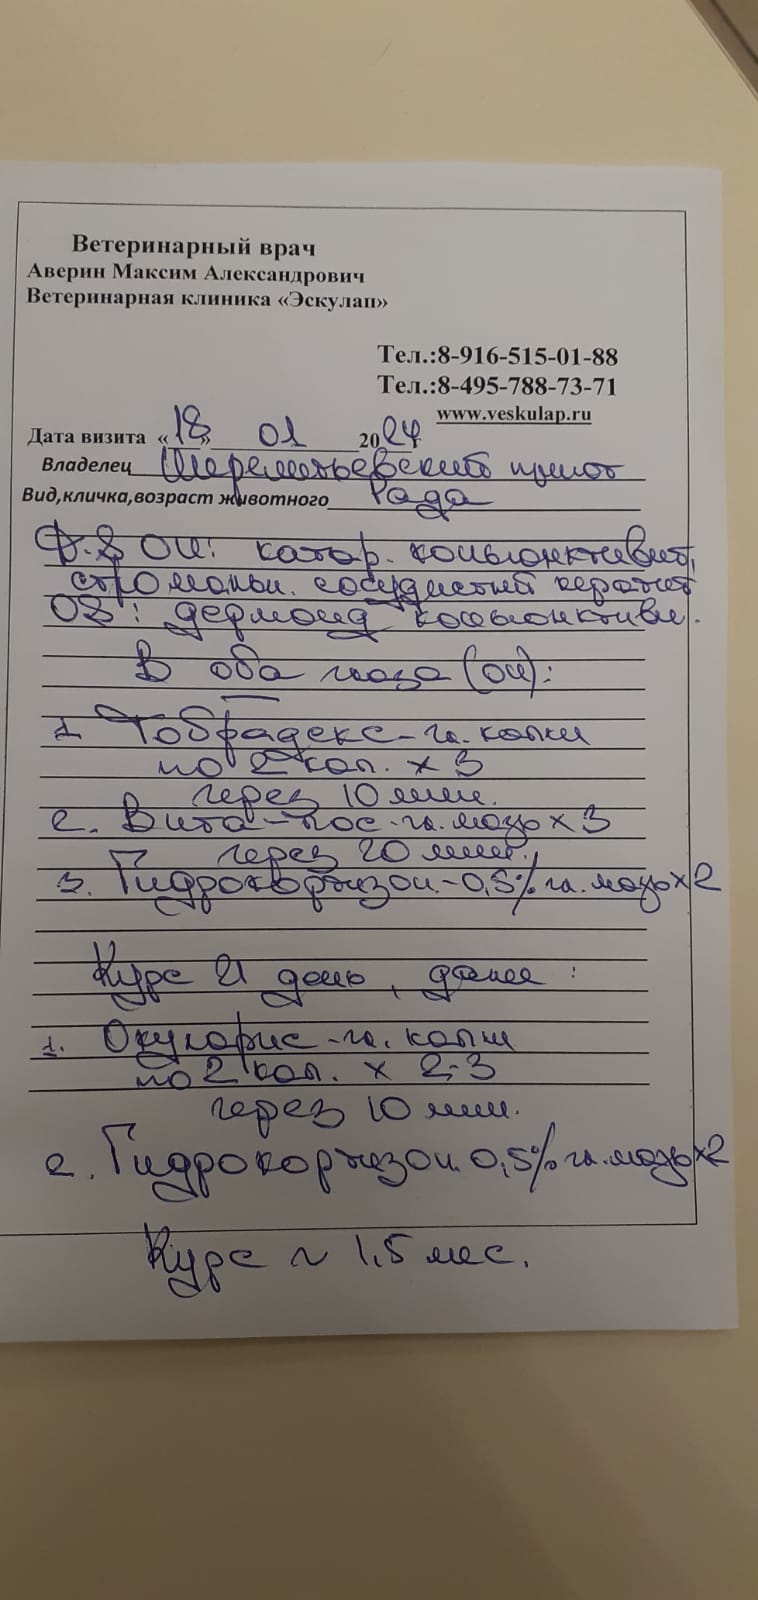 Ветеринарный врач
Аверин Максим Александрович
Ветеринарная клиника «Эскулап»
Тел.:8-916-515-01-88
Тел.:8-495-788-73-71
www.veskulap.ru
Дата визита «18» 01 2024
Владелец Шереметьевский приют
Вид,кличка,возраст животного Рада
OU: катар. конъюнктивит,
стромальн. сосудистый кератит
OS: дермоид конъюнктивы.
В оба глаза (OU):
1. Тобрадекс-гл. капли
по 2 кап. х 3
через 10 мин.
2. Вита-пос-гл. мазь х 3
через 20 мин.
3. Гидрокортизон-0,5% гл. мазь х 2
Курс 21 день, далее:
1. Окуларис-гл. капли
по 2 кап. х 2-3
через 10 мин.
2. Гидрокортизон 0,5% гл. мазь х2
Курс ~ 1,5 мес.